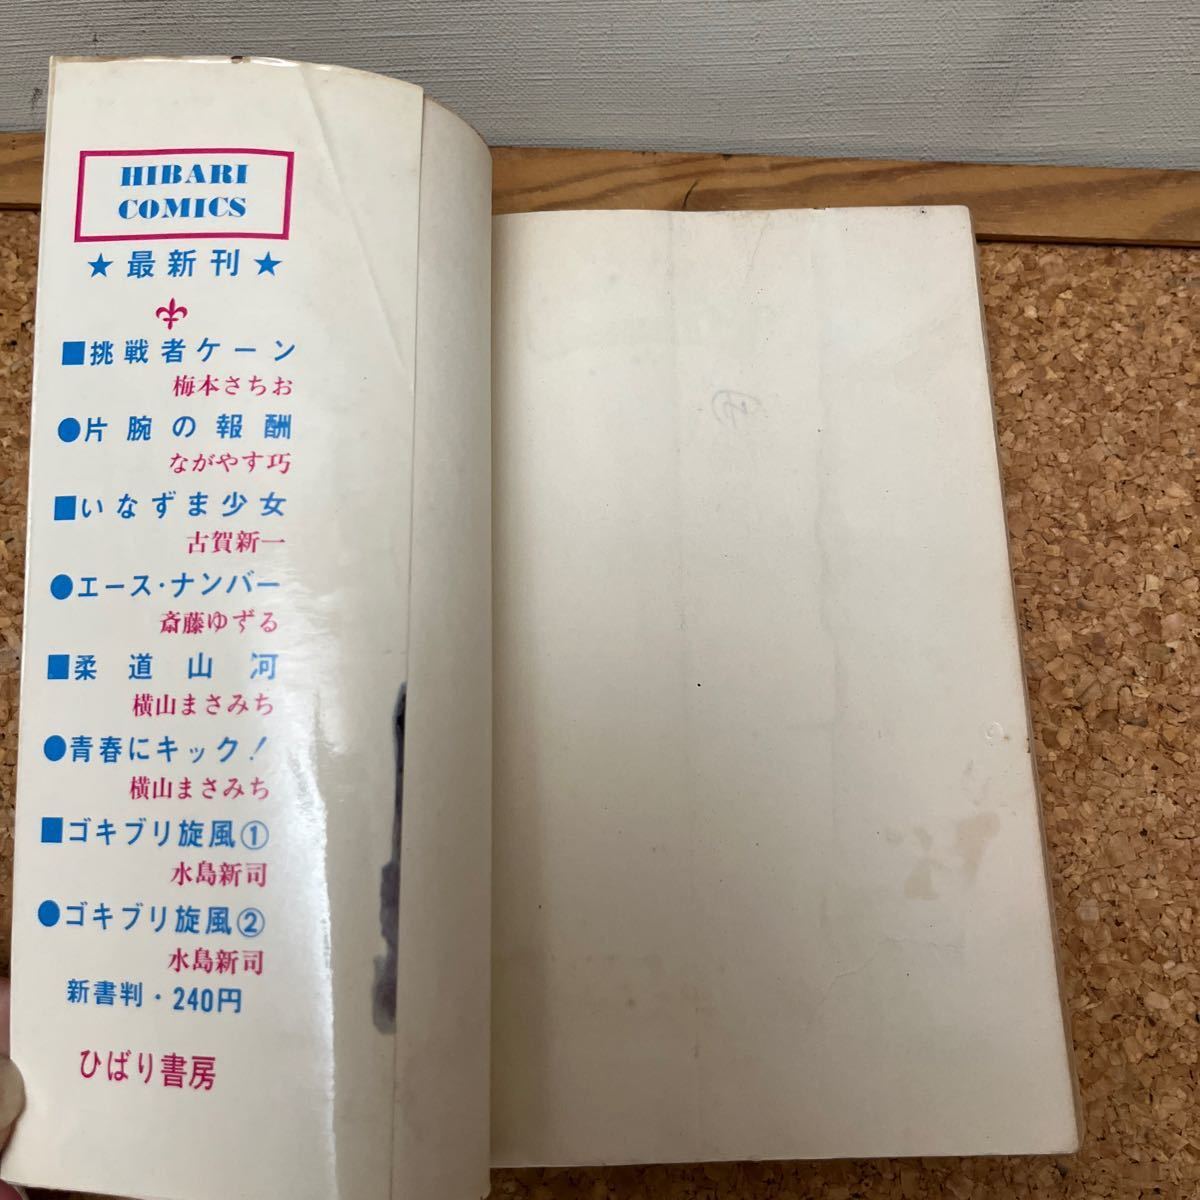 HIBARI
COMICS
★最新刊★
■挑戦者ケーン
梅本さちお
●片腕の報酬
ながやす巧
■いなずま少女
古賀新一
●エース・ナンバー
斎藤ゆずる
■柔道山河
横山まさみち
●青春にキック!
横山まさみち
■ゴキブリ旋風①
水島新司
●ゴキブリ旋風②
水島新司
新書判・240円
ひばり書房